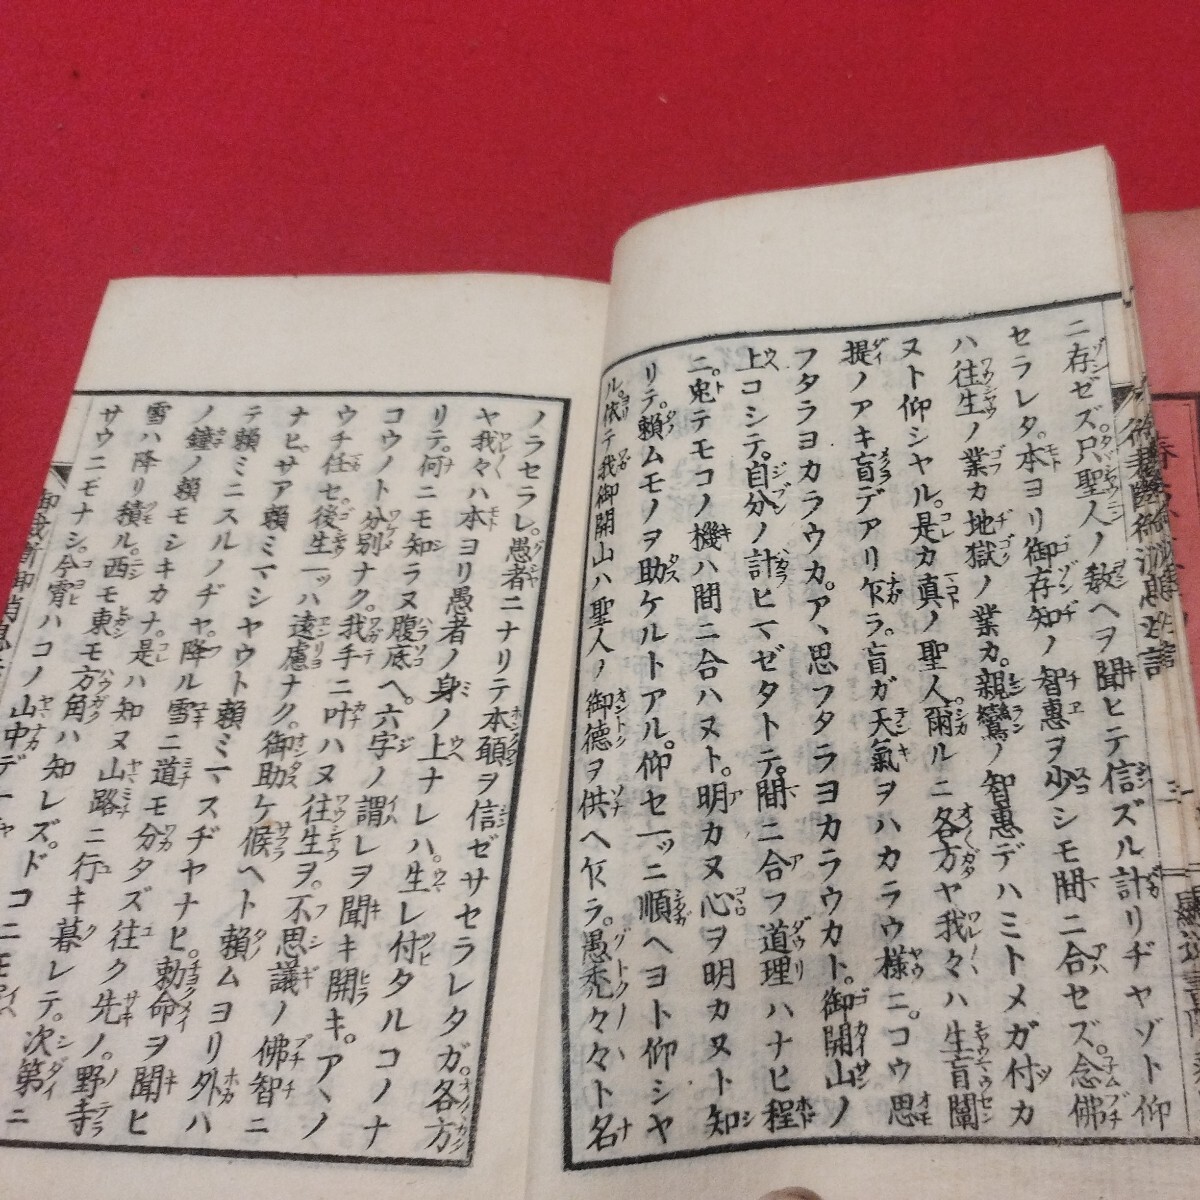 ニ存ゼズ只聖人ノ敎ヘヲ聞ヒテ信ズル計リヂヤゾト仰
セラレタ。本ヨリ御存知ノ智惠ヲ少シモ間ニ合セズ。念佛
ハ往生ノ業カ地獄ノ業カ。親鸞ノ智惠デハミトメガ付カ
ヌト仰シヤル。是カ真ノ聖人。爾ルニ各方ヤ我々ハ生盲闡
提ノアキ盲デアリ乍ラ。盲ガ天氣ヲハカラウ様ニ。コウ思
フタラヨカラウカ。ア、思フタラヨカラウカト。御開山ノ
上コシテ。自分ノ計ヒマゼタトテ。間ニ合フ道理ハナヒ程
ニ。兎テモコノ機ハ間ニ合ハヌト。明カヌ心ヲ明カヌト知
リテ。賴ムモノヲ助ケルトアル。仰セ一ッニ順ヘヨト仰シヤ
ル。依テ我御開山ハ聖人ノ御德ヲ供ヘ乍ラ。愚禿々々ト名
ノラセラレ。愚者ニナリテ本願ヲ信ゼサセラレタガ。各方
ヤ我々ハ本ヨリ愚者ノ身ノ上ナレハ。生レ付タルコノナ
リテ。何ニモ知ラヌ腹底ヘ。六字ノ謂レヲ聞キ開キ。アヽノ
コウノト分別ナク。我手ニ叶ハヌ往生ヲ。不思議ノ佛智ニ
ウチ任セ。後生一ッハ遠慮ナク。御助ケ候ヘト賴ムヨリ外ハ
ナヒ。サア賴ミマシヤウト賴ミマスヂヤナヒ。勅命ヲ聞ヒ
テ賴ミニスルノヂヤ。降ル雪ニ道モ分タズ往ク先ノ。野寺
ノ鐘ノ賴モシキカナ。是ハ知ヌ山路ニ行キ暮レテ。次第ニ
雪ハ降リ積ル。西モ東モ方角ハ知レズ。ドコニモ
サウニモナシ。今宵ハコノ山中デ